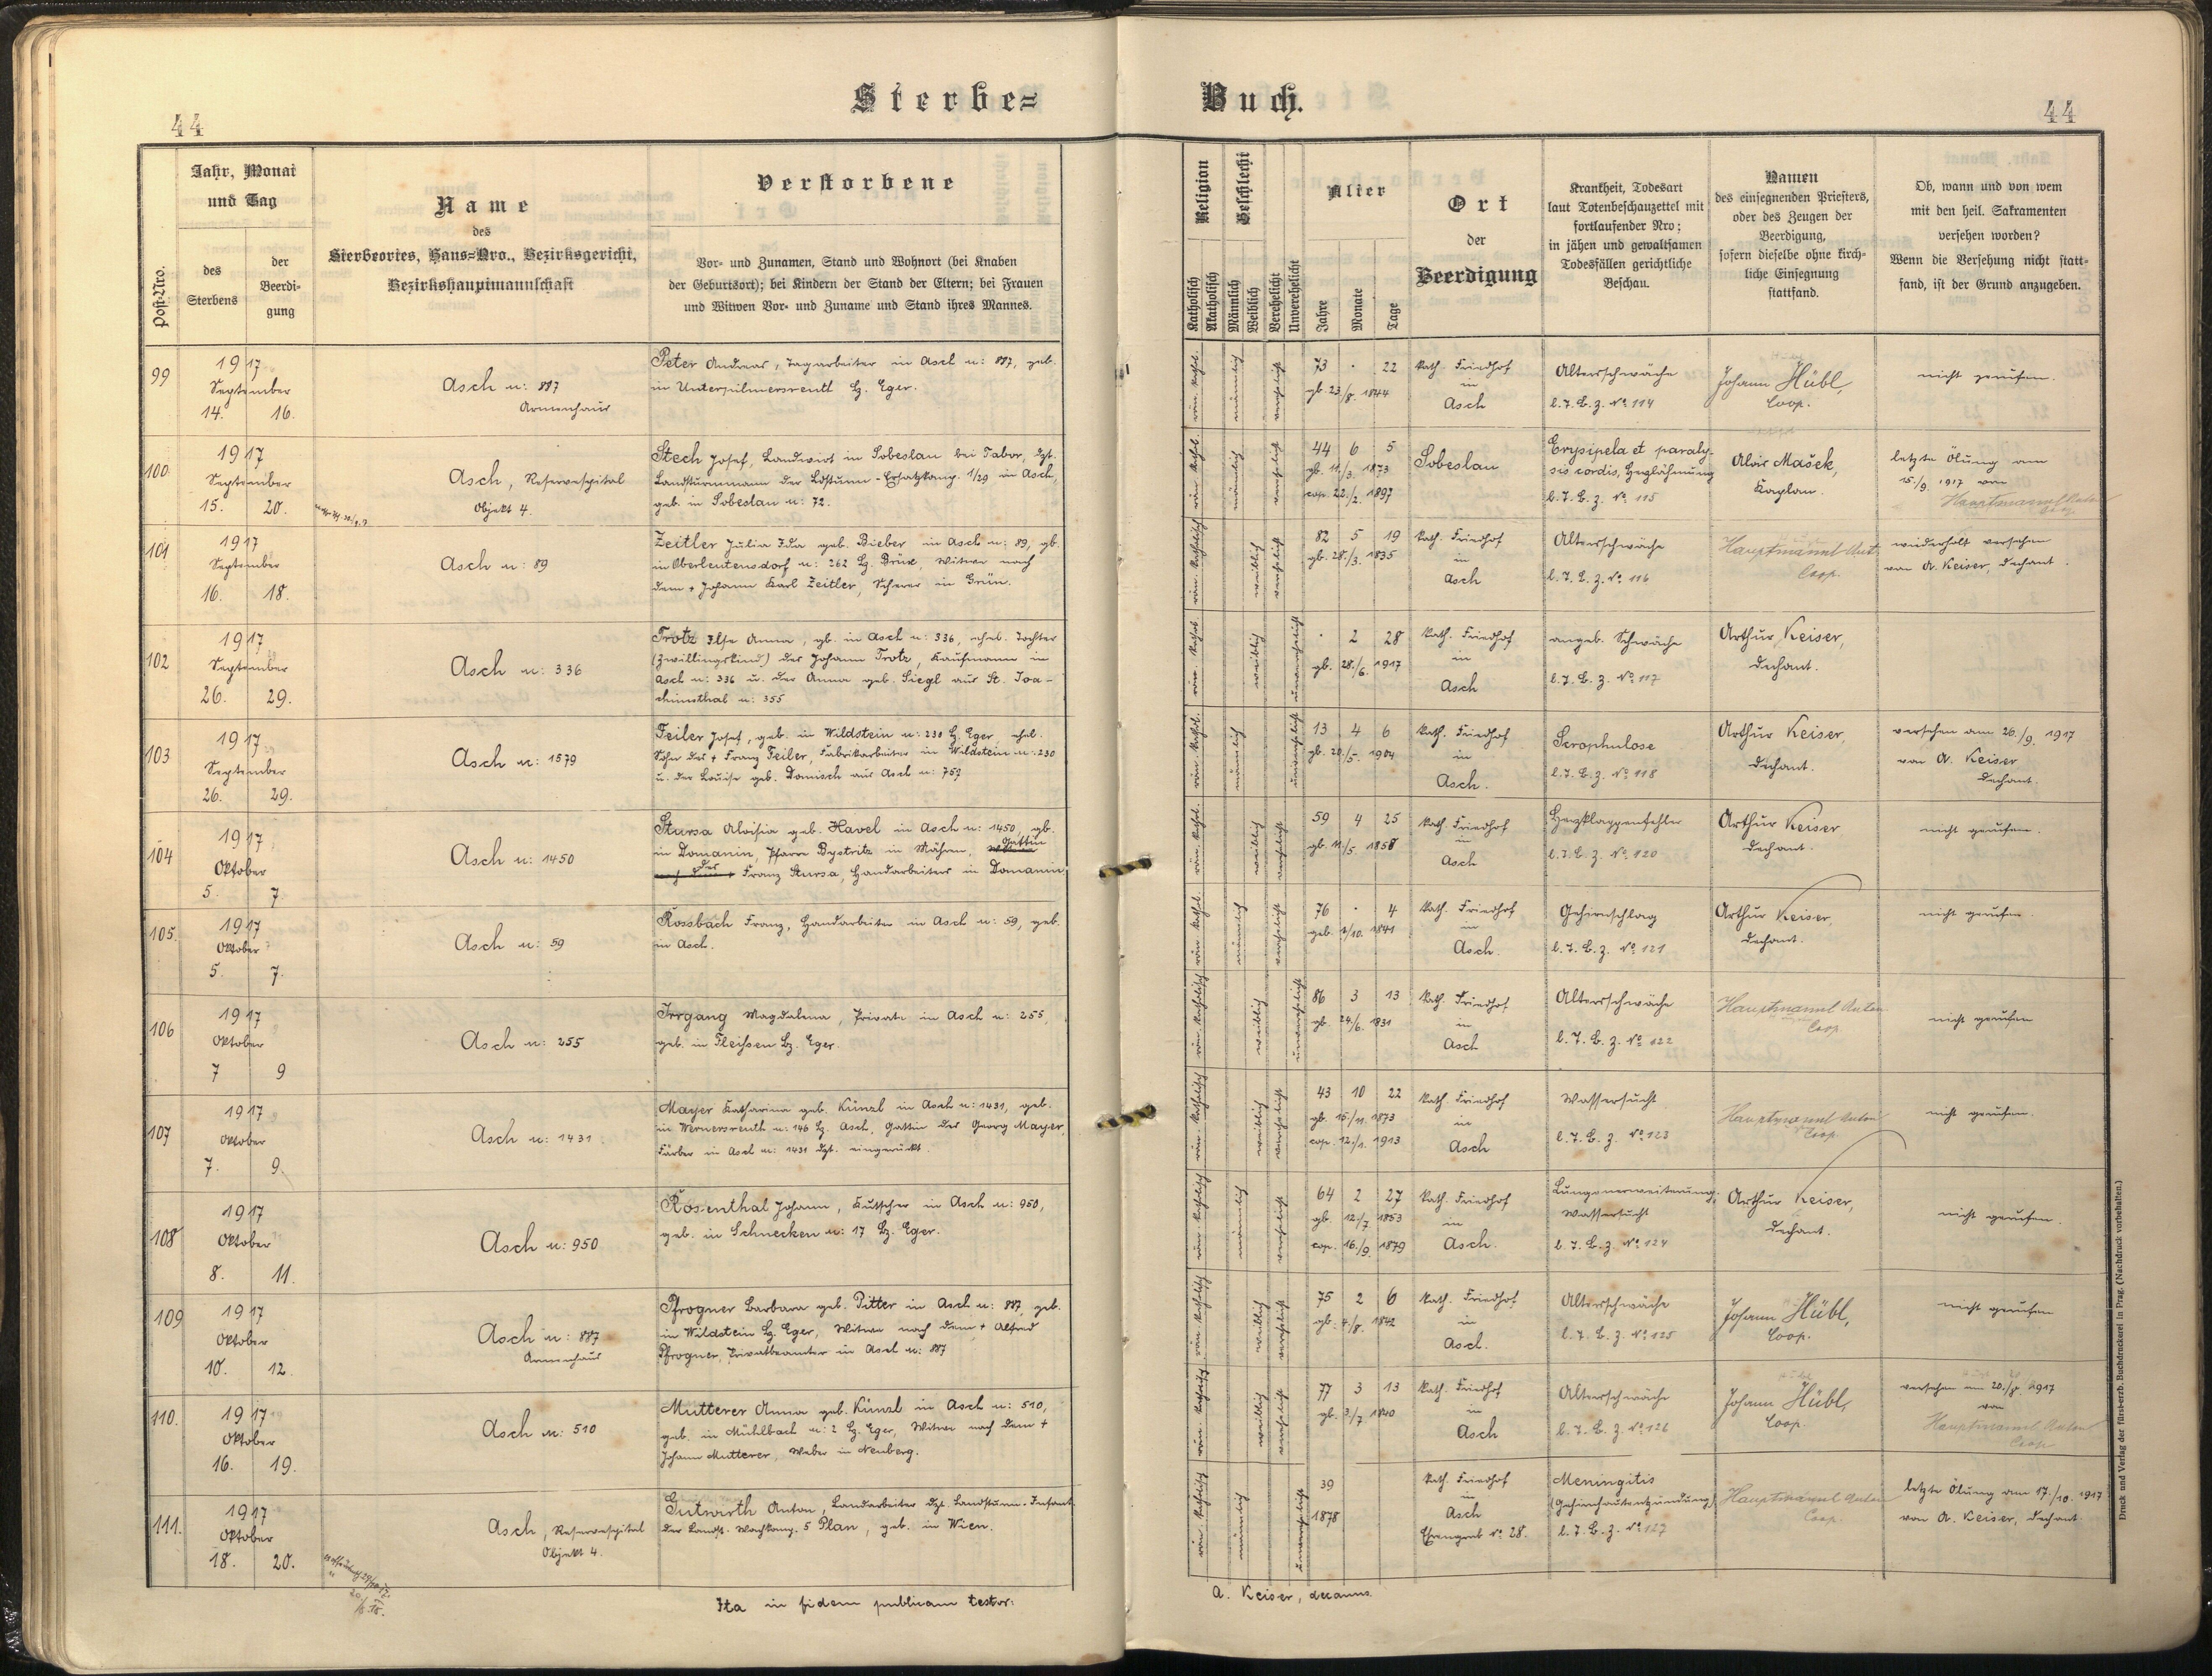 44
Sterbe=
Buch.
44
Post-Nro.
Jahr, Monat
und Tag
des
Sterbens
der
Beerdi-
gung
Name
des
Sterbeortes, Haus=Nro., Bezirksgericht,
Bezirkshauptmannschaft
Verstorbene
Vor- und Zunamen, Stand und Wohnort (bei Knaben
der Geburtsort); bei Kindern der Stand der Eltern; bei Frauen
und Witwen Vor- und Zuname und Stand ihres Mannes.
Religion
Katholisch
Akatholisch
Geschlecht
Männlich
Weiblich
Verehelicht
Unverehelicht
Alter
Jahre
Monate
Tage
Ort
der
Beerdigung
Krankheit, Todesart
laut Totenbeschauzettel mit
fortlaufender Nro;
in jähen und gewaltsamen
Todesfällen gerichtliche
Beschau.
Namen
des einsegnenden Priesters,
oder des Zeugen der
Beerdigung,
sofern dieselbe ohne kirch=
liche Einsegnung
stattfand.
Ob, wann und von wem
mit den heil. Sakramenten
versehen worden?
Wenn die Versehung nicht statt=
fand, ist der Grund anzugeben.
99
1917
September
14. 16.
Asch n: 887
Armenhaus
Peter Andreas, Tagarbeiter in Asch n: 887, geb.
in Unterpilmersreuth Bz. Eger.
röm. kathol.
männlich
verehelicht
73 · 22
gb. 23/8. 1844
kath. Friedhof
in
Asch
Altersschwäche
l. T. B. z. No 114
Johann Hübl,
Coop.
nicht gerufen.
100
1917
September
15. 20.
Asch, Reservespital
Objekt 4.
Stech Josef, Landwirt in Sobeslau bei Tabor, dzt.
Landsturmmann der Ldsturm-Ersatzkomp. 1/29 in Asch,
geb. in Sobeslau n: 72.
röm. kathol.
männlich
verehelicht
44 6 5
gb. 11./3. 1873
cop. 22./2. 1897
Sobeslau
Erysipela et paraly-
sis cordis, Herzlähmung
l. T. B. z. No 115
Alois Mašek,
Kaplan.
letzte Ölung am
15./9. 1917 von
Hauptmannl Anton
101
1917
September
16. 18.
Asch n: 89
Zeitler Julia Ida geb. Bieber in Asch n: 89, gb.
in Oberleutensdorf n: 262 Bz. Brüx, Witwe nach
dem + Johann Karl Zeitler, Scherer in Grün.
röm. katholisch
weiblich
verehelicht
82 5 19
gb. 28./3. 1835
kath. Friedhof
in
Asch
Altersschwäche
l. T. B. z. No 116
Hauptmannl Ant.
Coop.
wiederholt versehen
von A. Keiser, Dechant.
102
1917
September
26. 29.
Asch n: 336
Trotz Ilse Anna, gb. in Asch n: 336, ehel. Tochter
(Zwillingskind) des Johann Trotz, Kaufmann in
Asch n: 336 u. der Anna geb. Siegl aus St. Joa-
chimsthal n: 355
röm. kathol.
weiblich
unverehelicht
· 2 28
gb. 28./6. 1917
kath. Friedhof
in
Asch
angeb. Schwäche
l. T. B. z. No 117
Arthur Keiser,
Dechant.
103
1917
September
26. 29.
Asch n: 1579
Feiler Josef, geb. in Wildstein n: 230 Bz. Eger, ehel.
Sohn des + Franz Feiler, Fabrikarbeiter in Wildstein n: 230
u. der Louise geb. Domisch aus Asch n: 757
röm. kathol.
männlich
unverehelicht
13 4 6
gb. 20./5. 1904
kath. Friedhof
in
Asch.
Scrophulose
l. T. B. z. No 118
Arthur Keiser,
Dechant.
versehen am 26./9. 1917
von A. Keiser
Dechant.
104
1917
Oktober
5. 7.
Asch n: 1450
Stursa Aloisia geb. Havel in Asch n: 1450, gb.
in Domanin, Pfarre Bystritz in Mähren, Gattin
des Franz Stursa, Handarbeiters in Domanin
röm. kathol.
weiblich
verehelicht
59 4 25
gb. 11./5. 1858
kath. Friedhof
in
Asch
Herzklappenfehler
l. T. B. z. No 120
Arthur Keiser
Dechant.
nicht gerufen.
105.
1917
Oktober
5. 7.
Asch n: 59
Rossbach Franz, Handarbeiter in Asch n: 59, geb.
in Asch.
röm. kathol.
männlich
verehelicht
76 · 4
geb. 1/10. 1841
kath. Friedhof
in
Asch.
Gehirnschlag
l. T. B. z. No 121
Arthur Keiser,
Dechant.
nicht gerufen.
106
1917
Oktober
7 9
Asch n: 255
Irrgang Magdalena, Private in Asch n: 255,
geb. in Fleißen Bz. Eger.
röm. katholisch
weiblich
unverehelicht
86 3 13
gb. 24/6. 1831
kath. Friedhof
in
Asch
Altersschwäche
l. T. B. z. No 122
Hauptmannl Anton
Coop.
nicht gerufen
107
1917
Oktober
7. 9.
Asch n: 1431
Mayer Katharina geb. Künzl in Asch n: 1431, geb.
in Wernersreuth n: 146 Bz. Asch, Gattin des Georg Mayer,
Färber in Asch n: 1431 dzt. eingerückt.
röm. katholisch
weiblich
verehelicht
43 10 22
gb. 15./11. 1873
cop. 12./1. 1913
kath. Friedhof
in
Asch
Wassersucht
l. T. B. z. No 123
Hauptmannl Anton
Coop.
nicht gerufen.
108
1917
Oktober
8. 11.
Asch n: 950
Rosenthal Johann, Kutscher in Asch n: 950,
geb. in Schnecken n: 17 Bz. Eger.
röm. katholisch
männlich
verehelicht
64 2 27
gb. 12./7 1853
cop. 16./9. 1879
kath. Friedhof
in
Asch.
Lungenerweiterung,
Wassersucht
l. T. B. z. No 124
Arthur Keiser,
Dechant.
nicht gerufen.
109
1917
Oktober
10. 12.
Asch n: 887
Armenhaus
Pfrogner Barbara geb. Pitter in Asch n: 887, geb.
in Wildstein Bz. Eger, Witwe nach dem + Alfred
Pfrogner, Privatbeamter in Asch n: 887
röm. katholisch
weiblich
verehelicht
75 2 6
gb. 4/8. 1842
kath. Friedhof
in
Asch.
Altersschwäche
l. T. B. z. No 125
Johann Hübl,
Coop.
nicht gerufen
110.
1917
Oktober
16. 19.
Asch n: 510
Mutterer Anna geb. Künzl in Asch n: 510,
geb. in Mühlbach n: 2 Bz. Eger, Witwe nach dem +
Johann Mutterer, Weber in Neuberg.
röm. katholisch
weiblich
verehelicht
77 3 13
gb. 3/7 1840
kath. Friedhof
in
Asch
Altersschwäche
l. T. B. z. No 126
Johann Hübl,
Coop.
versehen am 20./8. 1917
von
Hauptmannl Anton
Coop
111.
1917
Oktober
18. 20.
Asch, Reservespital
Objekt 4.
Gutwirth Anton, Landarbeiter dzt. Landsturm-Infant.
der Landst. Wachkomp. 5 Plan, geb. in Wien.
röm. katholisch
männlich
unverehelicht
39
1878
kath. Friedhof
in
Asch
Ehrengrab No 28.
Meningitis
(Gehirnhautentzündung)
l. T. B. z. No 127
Hauptmannl Anton
Coop.
letzte Ölung am 17./10. 1917
von A. Keiser, Dechant
Ita in fidem publicam testor:
A. Keiser, decanus.
Druck und Verlag der fürst=erzb. Buchdruckerei in Prag. (Nachdruck vorbehalten.)